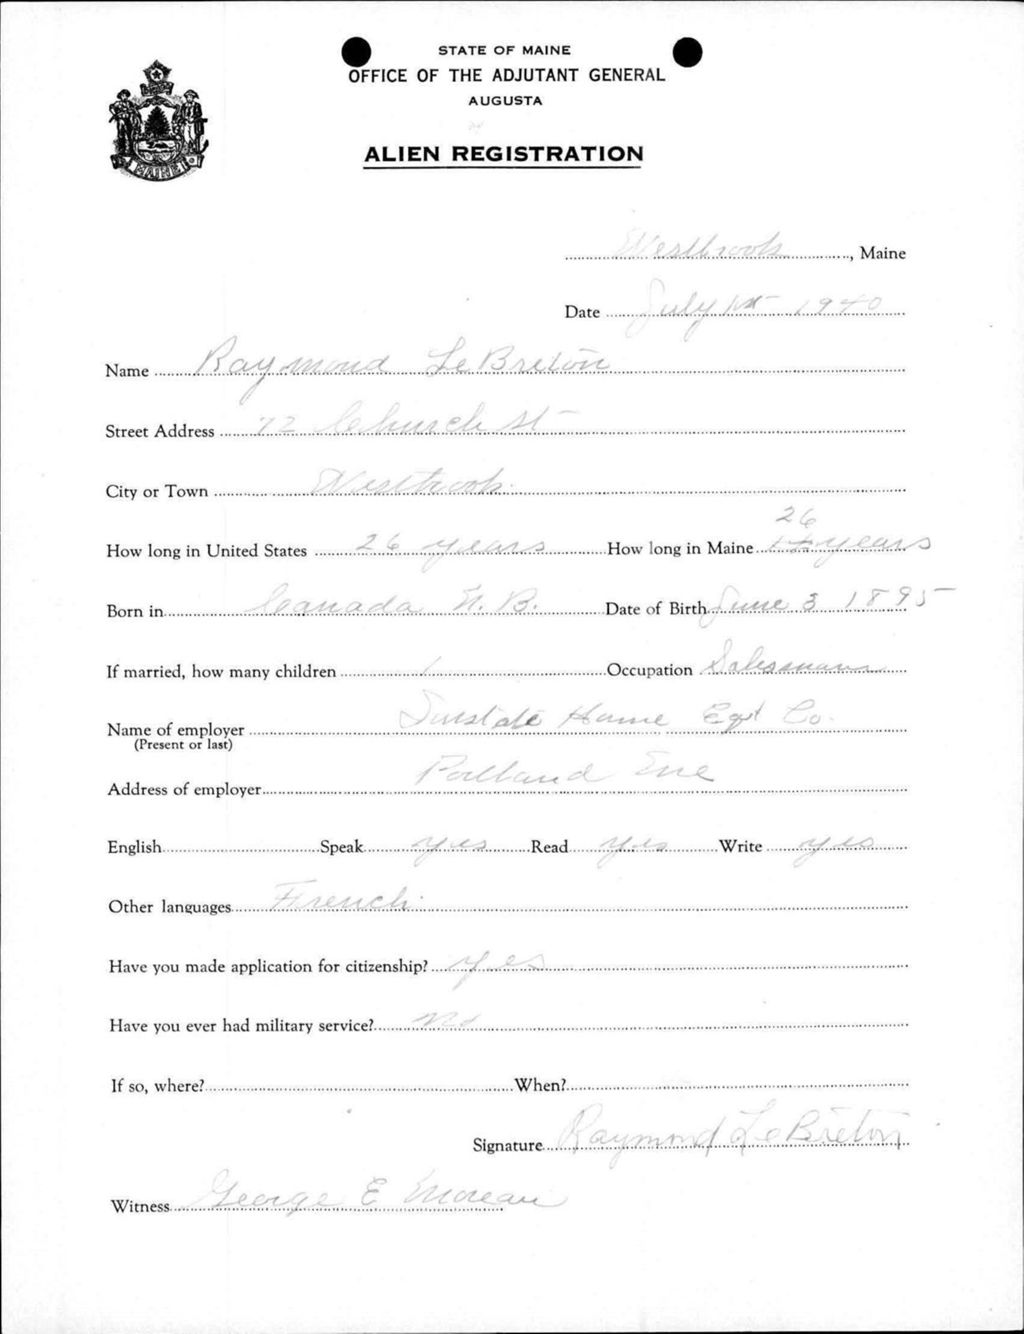 STATE OF MAINE
OFFICE OF THE ADJUTANT GENERAL
AUGUSTA
ALIEN REGISTRATION
Westbrook, Maine
Date July 1st 1940
Name Raymond LeBreton
Street Address 72 Church St
City or Town Westbrook
26
How long in United States 26 years How long in Maine years
Born in Canada N.B. Date of Birth June 3 1895
If married, how many children 1 Occupation Salesman
Name of employer Home Eqt Co.
(Present or last)
Address of employer Portland Me
English Speak yes Read yes Write yes
Other languages French
Have you made application for citizenship? yes
Have you ever had military service? No
If so, where? When?
Signature Raymond LeBreton
Witness George E Moreau